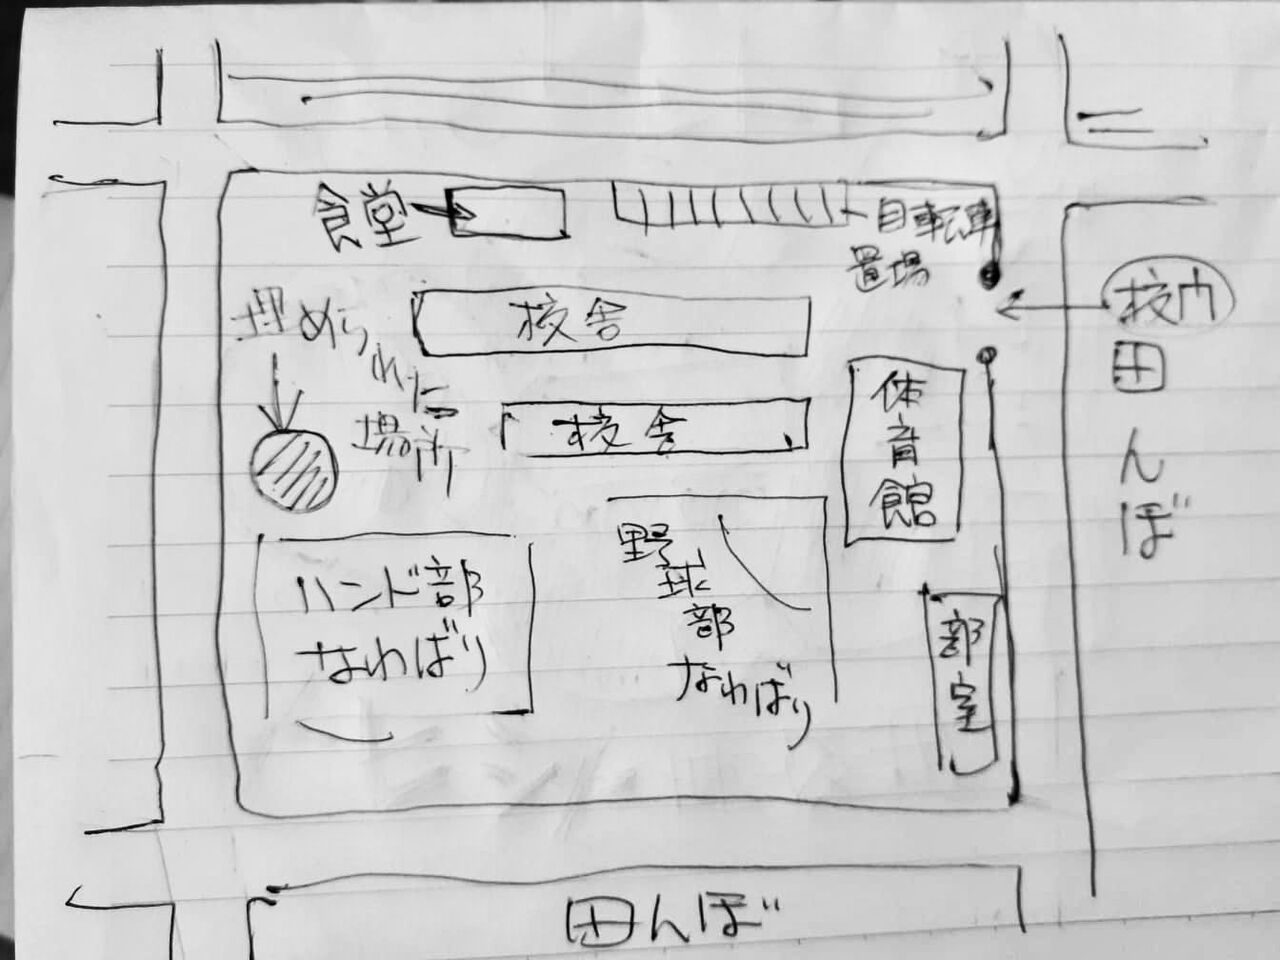 食堂
自転車
置場
埋められた
場所
校舎
校舎
体育館
校門
田んぼ
ハンド部
なわばり
野球部
なわばり
部室
田んぼ